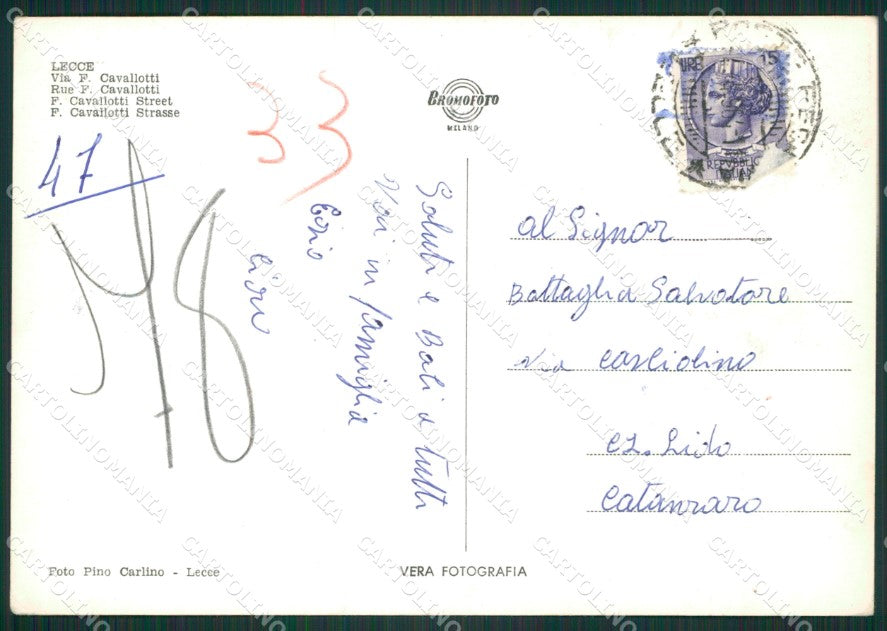 LECCE
Via F. Cavallotti
Rue F. Cavallotti
F. Cavallotti Street
F. Cavallotti Strasse
47
33
CROMOFOTO
MILANO
LIRE 15
REPUBBLICA
ITALIANA
Saluti e Baci a tutti
Voi in famiglia
Ezio
Ciao
al Signor
Battaglia Salvatore
Via
CZ. Lido
Catanzaro
Foto Pino Carlino - Lecce
VERA FOTOGRAFIA
CARTOLINOMANIA